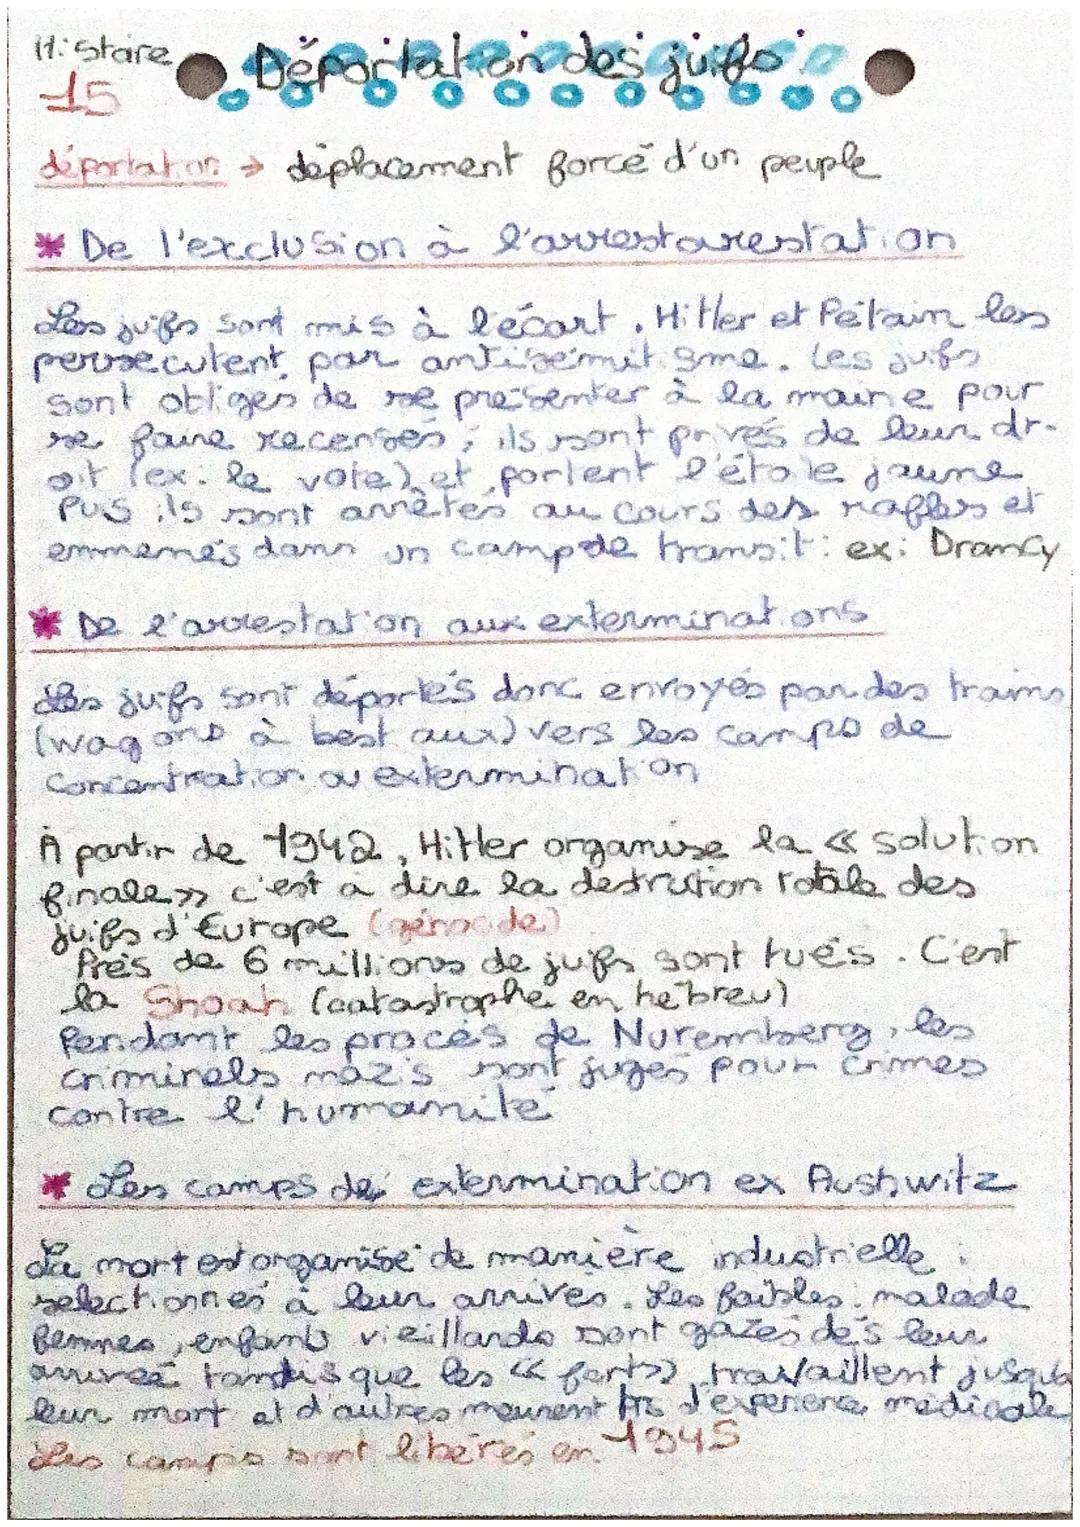 Histoire
15
Déportation des juifs
déportation → déplacement forcé d'un peuple
* De l'exclusion à l'arrestarestation
Les juifs sont mis à l'écart. Hitler et Pétain les
persecutent par antisémitisme. Les juifs
sont obligés de se présenter à la mairie pour
se faire recensés, ils sont privés de leur dr-
oit (ex: le vote) et portent l'étoile jaune
Puis ils sont arrêtés au cours des rafles et
emmenés dans un camp de transit: ex: Drancy
* De l'arrestation aux exterminations
Les juifs sont déportés donc envoyés par des trains
(wagons à bestiaux) vers les camps de
concentration ou extermination
À partir de 1942, Hitler organise la « solution
finale » c'est à dire la destrution totale des
juifs d'Europe (génocide)
Près de 6 millions de juifs sont tués. C'est
la Shoah (catastrophe en hébreu)
Pendant les procès de Nuremberg, les
criminels nazis sont jugés pour crimes
contre l'humanité
* Les camps de extermination ex Aushwitz
La mort est organisé de manière industrielle :
selectionnés à leur arrives. Les faibles: malade
femmes, enfants vieillards sont gazés dès leur
arrivée tandis que les « forts » travaillent jusqu'à
leur mort et d'autres meurent d'experience médicale
Les camps sont libérés en 1945